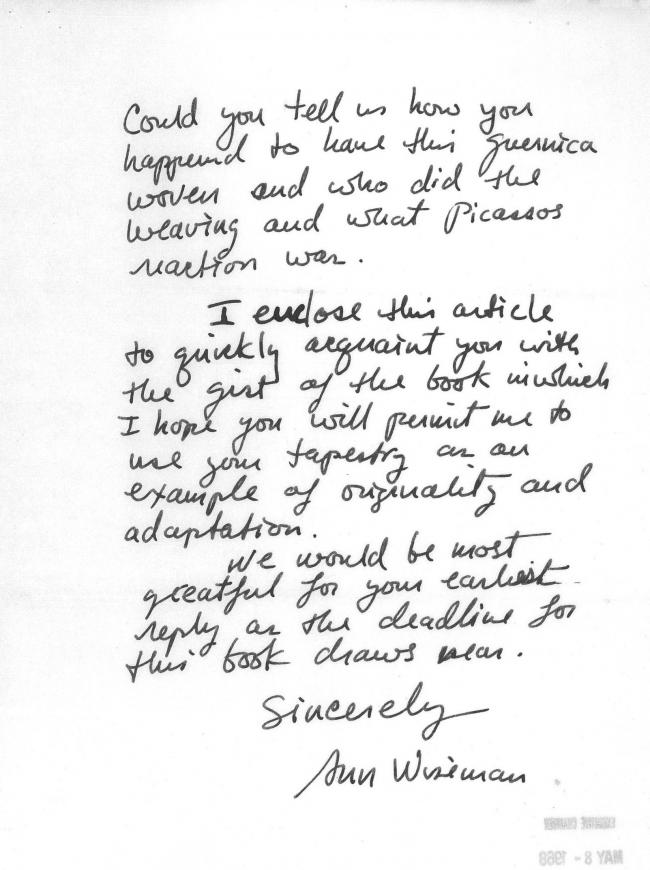 Could you tell us how you
happend to have this guernica
woven and who did the
weaving and what Picassos
reaction was.
I enclose this article
to quickly acquaint you with
the gist of the book inwhich
I hope you will permit me to
use your tapestry as an
example of originality and
adaptation.
We would be most
greatful for your earliest
reply as the deadline for
this book draws near.
Sincerely
Ann Wiseman
EXECUTIVE CHAMBER
MAY 8 - 1968